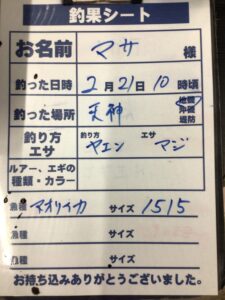 釣果シート
お名前 マサ 様
釣った日時 2月21日10時頃
釣った場所 天神 地磯 沖磯 堤防
釣り方 エサ 釣り方 ヤエン エサ マジ
ルアー、エギの種類・カラー
魚種 アオリイカ サイズ 1515
魚種 サイズ
魚種 サイズ
お持ち込みありがとうございました。